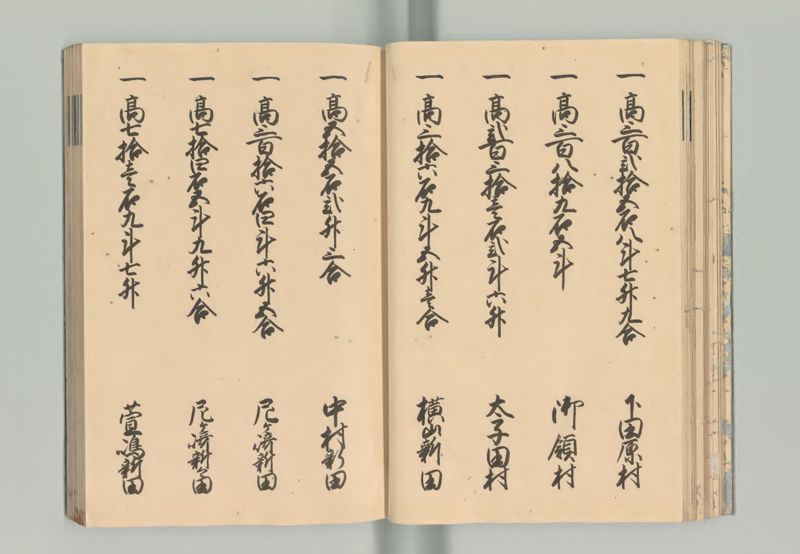 一高三百弐拾五石八斗七升九合 下田原村
一高三百八拾九石五斗 御領村
一高弐百三拾壱石弐斗六升 太子田村
一高三拾六石九斗五升壱合 横山新田
一高五拾五石弐升三合 中村新田
一高三百拾六石四斗六升五合 尼ヶ崎新田
一高七拾四石五斗九升六合 尼ヶ崎新田
一高七拾壱石九斗七升 萱嶋新田